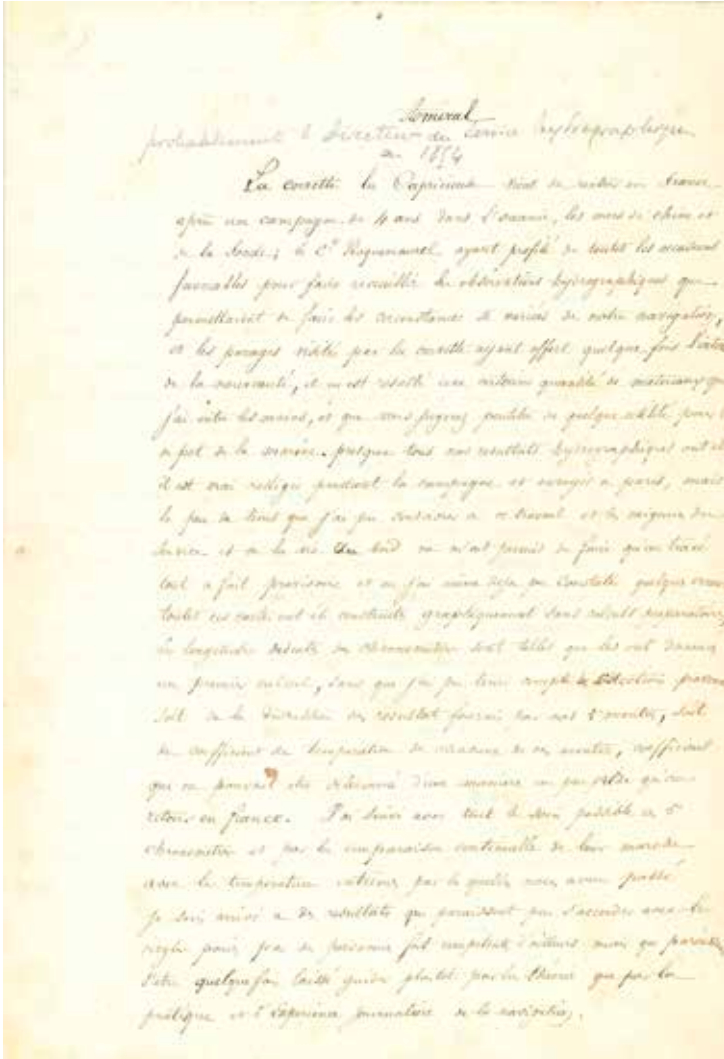 Amiral
probablement le Directeur du Service hydrographique
en 1854
La corvette la Capricieuse vient de rentrer en france
après une campagne de 4 ans dans l'oceanie, les mers de chine et
de la Sonde; le Ct Roquemaurel ayant profité de toutes les occasions
favorables pour faire recueillir les observations hydrographiques que
permettaient de faire les circonstances si variées de notre navigation,
et les parages visités par la corvette ayant offert quelque fois l'attrait
de la nouveauté, il en est resulté une certaine quantité de materiaux que
j'ai entre les mains, et que vous jugerez peutêtre de quelque utilité pour le
depot de la marine. presque tous nos resultats hydrographiques ont été
il est vrai rediges pendant la campagne et envoyés a paris, mais
le peu de tems que j'ai pu consacrer a ce travail et les exigences du
service et de la vie du bord ne m'ont permis de faire qu'un tracé
tout a fait provisoire et ou j'ai même deja pu constater quelque erreur
toutes ces cartes ont été construites graphiquement sans calculs preparatoires,
les longitudes deduites des chronometres sont telles que les ont données
un premier calcul, sans que j'ai pu tenir compte
soit de la discussion des resultats fournis par nos 5 montres, soit
du coefficient de temperature de chacune de ces montres, coefficient
qui ne pouvait être determiné d'une manière un peu qu'au
retour en france. J'ai suivi avec tout le soin possible ces 5
chronometres et par la comparaison continuelle de leur marche
avec les temperatures extremes par lesquelles nous avons passé
je suis arrivé a des resultats qui paraissent peu s'accorder avec les
regles posées par des personnes fort competentes d'ailleurs mais qui paraissent
s'etre quelque fois laissé guider plutôt par la théorie que par la
pratique et l'experience journalière de la navigation.